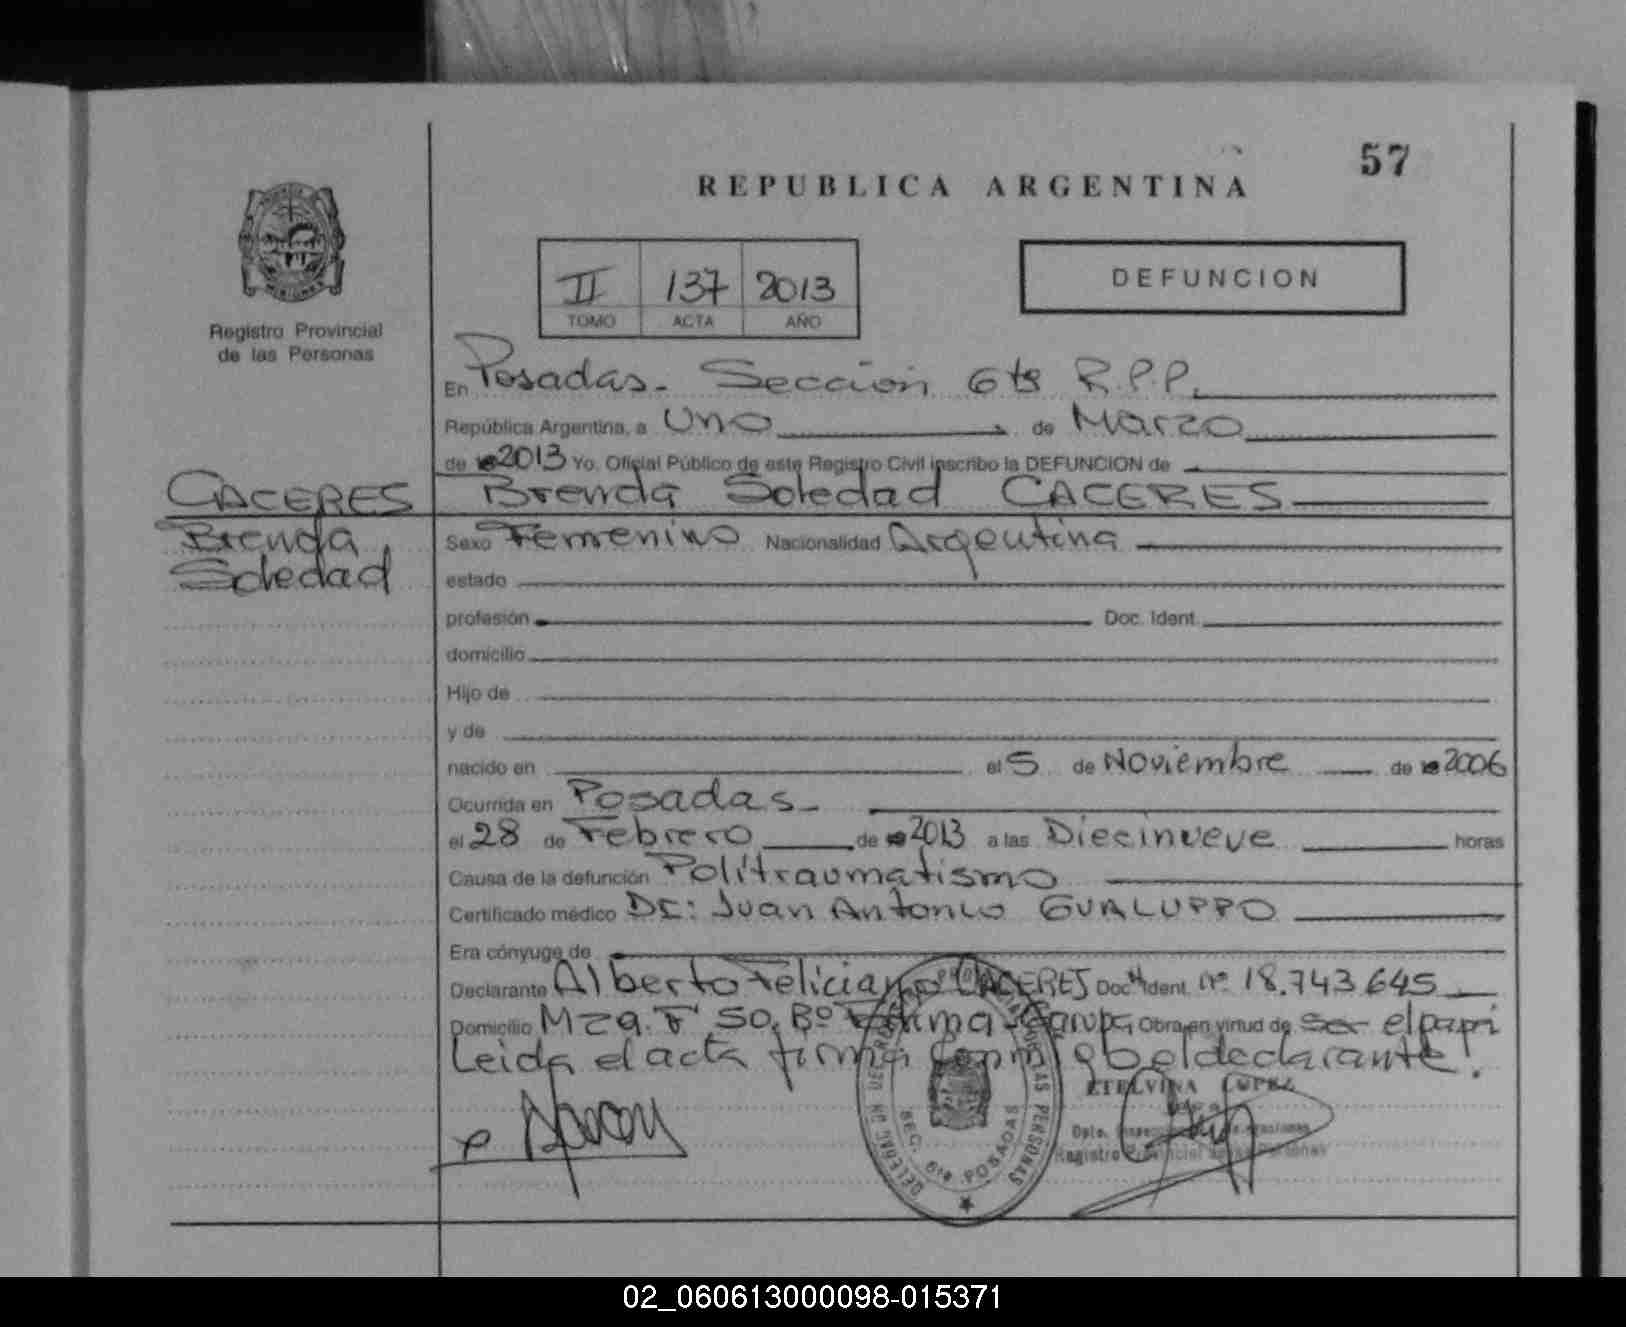 57
REPUBLICA ARGENTINA
II 137 2013
TOMO ACTA AÑO
DEFUNCION
MISIONES
Registro Provincial
de las Personas
En Posadas - Sección 6ta R.P.P.
República Argentina, a Uno de Marzo
de 2013 Yo, Oficial Público de este Registro Civil inscribo la DEFUNCION de
CACERES Brenda Soledad CACERES
Brenda
Soledad
Sexo Femenino Nacionalidad Argentina
estado
profesión Doc. Ident.
domicilio
Hijo de
y de
nacido en el 5 de Noviembre de 2006
Ocurrida en Posadas -
el 28 de Febrero de 2013 a las Diecinueve horas
Causa de la defunción Politraumatismo
Certificado médico Dr: Juan Antonio GUALUPPO
Era cónyuge de
Declarante Alberto Feliciano CACERES Doc. Ident. Nº 18.743.645
Domicilio Mza. F' 50. Bº Fátima - Garupá Obra en virtud de ser el papá
Leida el acta firma conmigo el declarante!
ETELVINA LOPEZ
Dpto.
Registro Provincial de las Personas
REGISTRO PROVINCIAL DE LAS PERSONAS
SEC. 6ta POSADAS
02_060613000098-015371